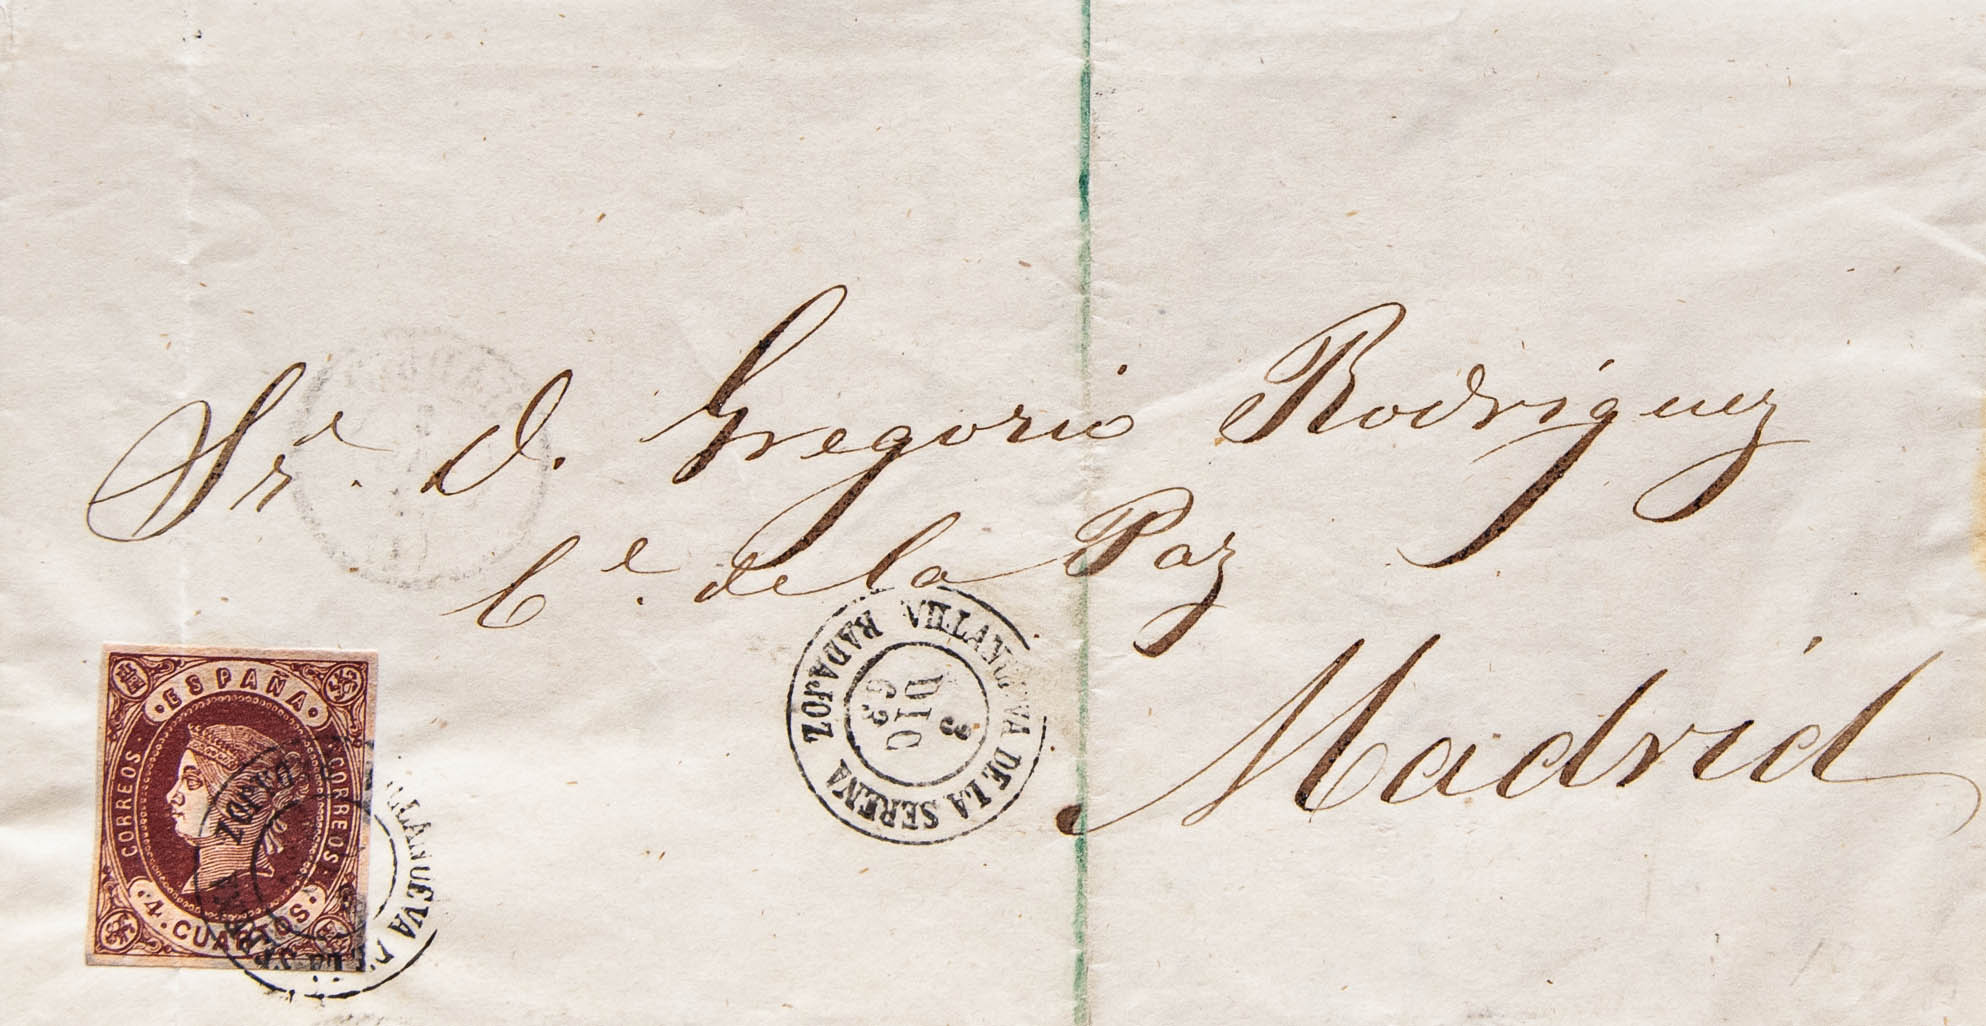 Sr. D. Gregorio Rodriguez
Ce. de la Paz
Madrid
VILLANUEVA DE LA SERENA
BADAJOZ
3
DIC
63
·ESPAÑA·
CORREOS
CORREOS
·4·CUARTOS·
VILLANUEVA DE LA SERENA
BADAJOZ